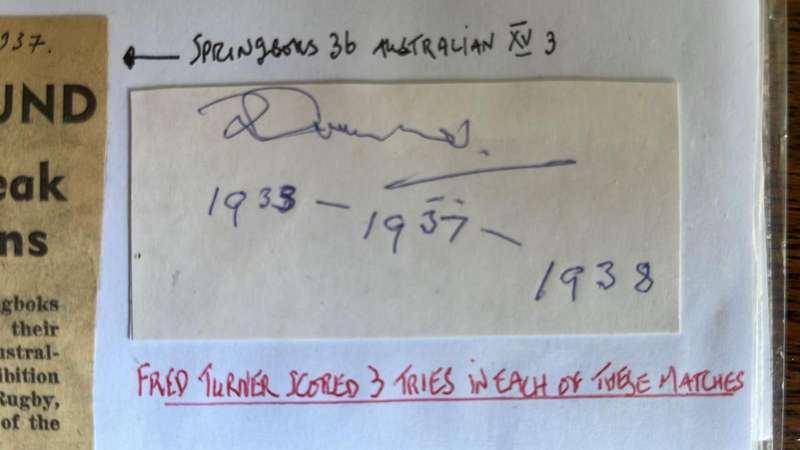 937.
← SPRINGBOKS 36 AUSTRALIAN XV 3
UND
eak
ns
gboks
their
ustral-
ibition
Rugby,
of the
1933 – 1937 –
1938
FRED TURNER SCORED 3 TRIES IN EACH OF THESE MATCHES